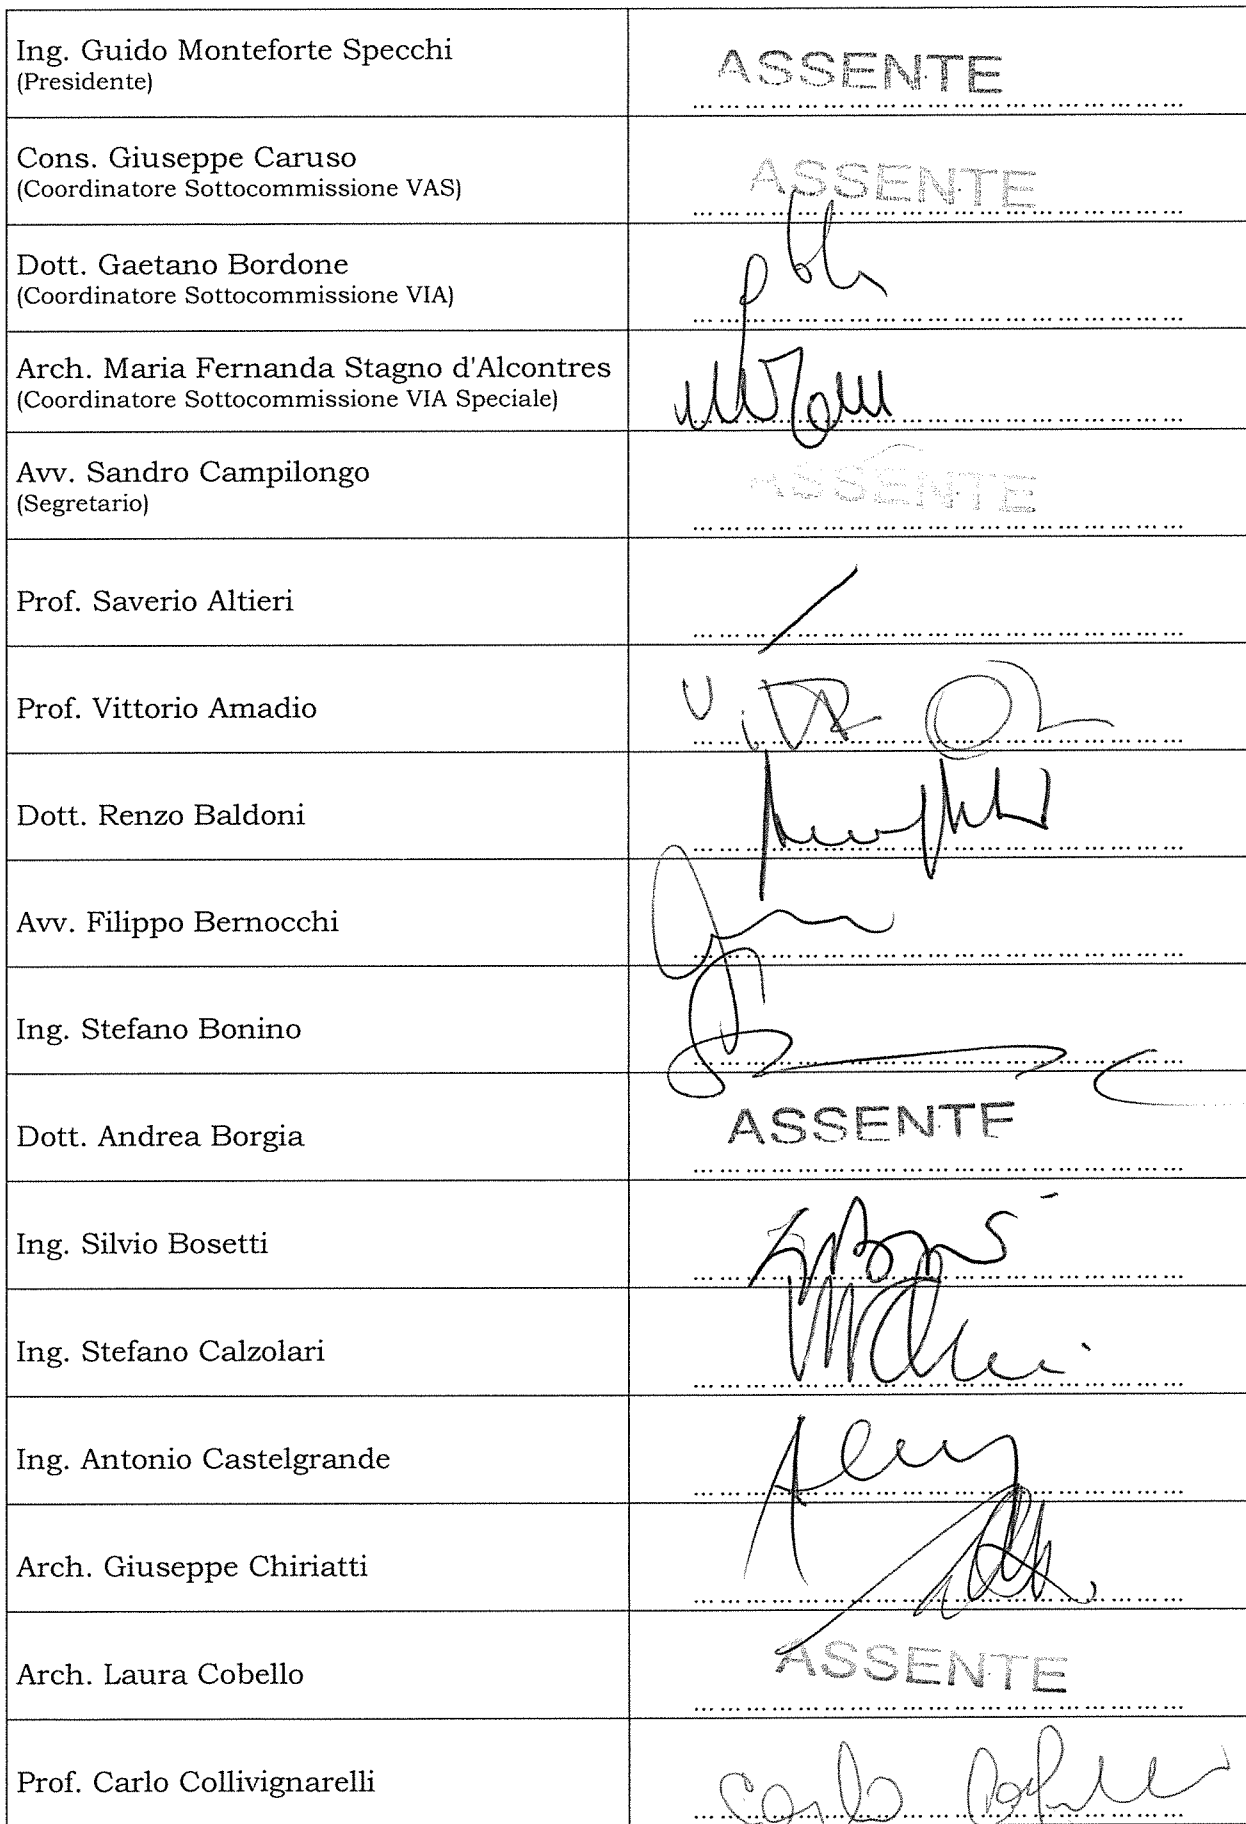 Ing. Guido Monteforte Specchi
(Presidente)
ASSENTE
Cons. Giuseppe Caruso
(Coordinatore Sottocommissione VAS)
ASSENTE
Dott. Gaetano Bordone
(Coordinatore Sottocommissione VIA)
Arch. Maria Fernanda Stagno d'Alcontres
(Coordinatore Sottocommissione VIA Speciale)
Avv. Sandro Campilongo
(Segretario)
ASSENTE
Prof. Saverio Altieri
Prof. Vittorio Amadio
Dott. Renzo Baldoni
Avv. Filippo Bernocchi
Ing. Stefano Bonino
Dott. Andrea Borgia
ASSENTE
Ing. Silvio Bosetti
Ing. Stefano Calzolari
Ing. Antonio Castelgrande
Arch. Giuseppe Chiriatti
Arch. Laura Cobello
ASSENTE
Prof. Carlo Collivignarelli
Carlo